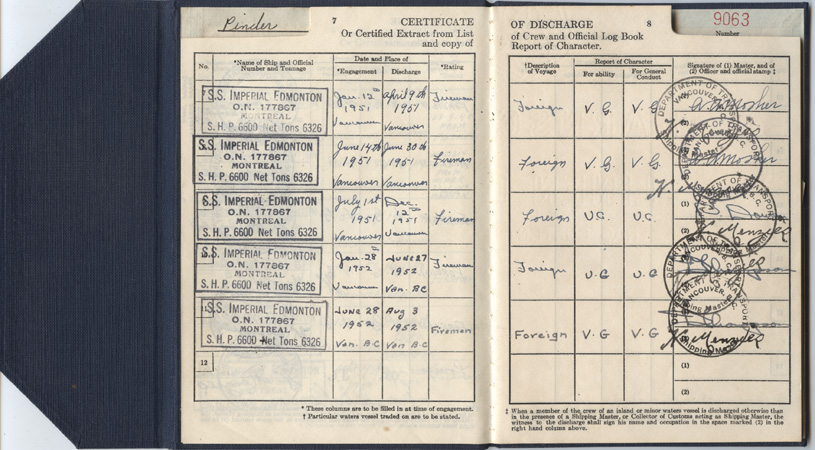 Pinder
7
CERTIFICATE
Or Certified Extract from List
and copy of
No.
*Name of Ship and Official
Number and Tonnage
Date and Place of
*Engagement
Discharge
*Rating
S.S. IMPERIAL EDMONTON
O.N. 177867
MONTREAL
S. H. P. 6600 Net Tons 6326
Jan. 12th
1951
Vancouver
April 9th
1951
Vancouver
Fireman
S.S. IMPERIAL EDMONTON
O.N. 177867
MONTREAL
S. H. P. 6600 Net Tons 6326
June 14th
1951
Vancouver
June 30th
1951
Vancouver
Fireman
S.S. IMPERIAL EDMONTON
O.N. 177867
MONTREAL
S. H. P. 6600 Net Tons 6326
July 1st
1951
Vancouver
Dec.
12
1951
Vancouver
Fireman
S.S. IMPERIAL EDMONTON
O.N. 177867
MONTREAL
S. H. P. 6600 Net Tons 6326
Jan. 28
1952
Vancouver
June 27
1952
Van. BC
Fireman
S.S. IMPERIAL EDMONTON
O.N. 177867
MONTREAL
S. H. P. 6600 Net Tons 6326
June 28
1952
Van. B.C
Aug 3
1952
Van. B.C
Fireman
12
* These columns are to be filled in at time of engagement.
† Particular waters vessel traded on are to be stated.
OF DISCHARGE
8
9063
Number
of Crew and Official Log Book
Report of Character.
†Description
of Voyage
Report of Character
For ability
For General
Conduct
Signature of (1) Master, and of
(2) Officer and official stamp ‡
Foreign V. G. V. G.
Mosher
Foreign V. G. V. G.
Mosher
Foreign V.G. V.G.
(1)
(2)
Menzies
Foreign V.G V.G
Foreign V.G V.G
Menzies
DEPARTMENT OF TRANSPORT
VANCOUVER, B.C.
Shipping Master
(1)
(2)
‡ When a member of the crew of an inland or minor waters vessel is discharged otherwise than
in the presence of a Shipping Master, or Collector of Customs acting as Shipping Master, the
witness to the discharge shall sign his name and occupation in the space marked (2) in the
right hand column above.